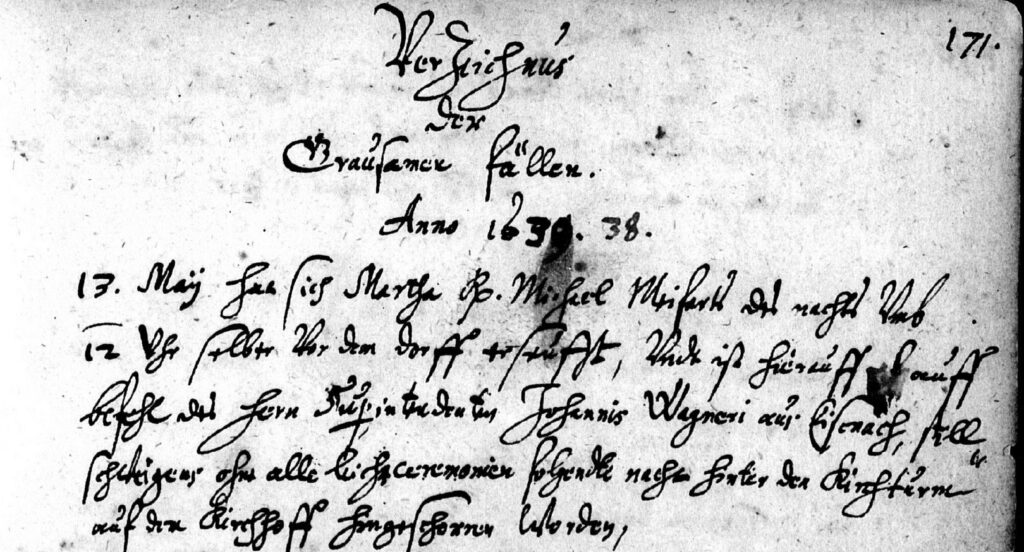 171.
Verzeichnus
der
Grausamen fällen.
Anno 1639. 38.
13. Maÿ hat sich Martha Michael Meiferts des nachts Umb
12 Uhr selber Vor dem dorff erseufft, Undt ist hierauff auff
befehl des hern Superintendenten Johannis Wagneri aus Eisenach, still
schweigens ohn alle leichceremonien folgendte nacht hinter den Kirchturm
auf den Kirchhoff hingeschorren worden,